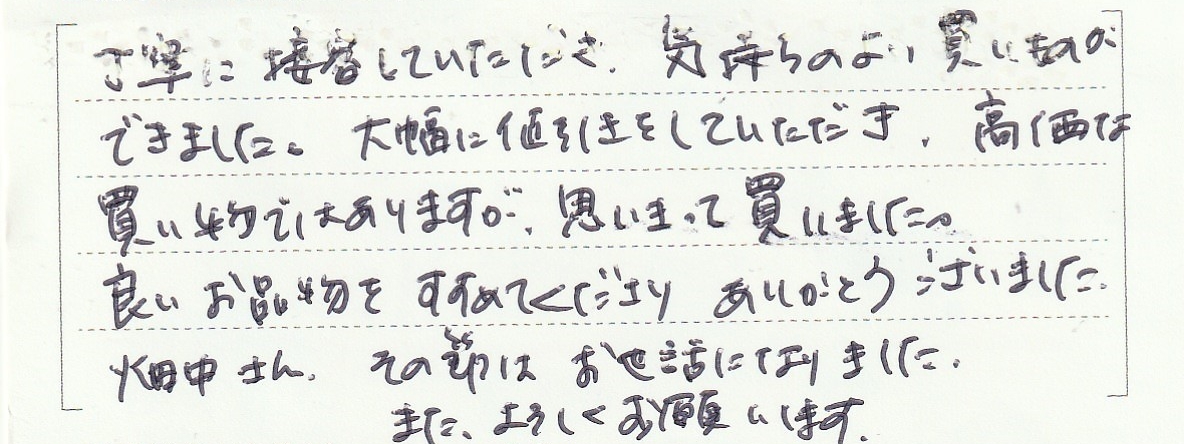 丁寧に接客していただき、気持ちのよい買いものが
できました。大幅に値引きをしていただき、高価な
買い物ではありますが、思いきって買いました。
良いお品物をすすめてくださり ありがとうございました。
畑中さん、その節は お世話になりました。
また、よろしくお願いします。